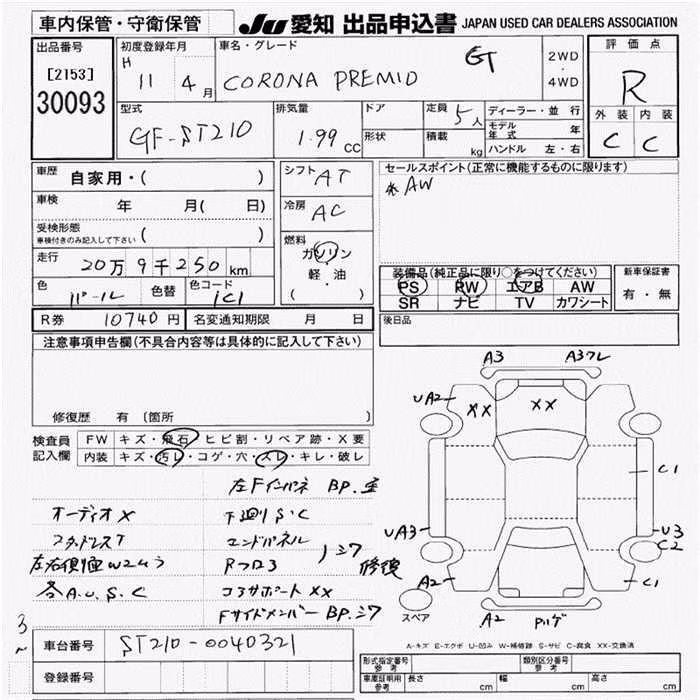 車内保管・守衛保管
JU 愛知 出品申込書 JAPAN USED CAR DEALERS ASSOCIATION
出品番号
[2153]
30093
初度登録年月
H 11 4月
車名・グレード
CORONA PREMIO GT
2WD
・
4WD
評価点
R
外装 内装
C C
型式
GF-ST210
排気量
1.99 CC
ドア
形状
定員 5人
積載 kg
ディーラー・並行
モデル年式 年
ハンドル 左・右
車歴 自家用・( )
車検 年 月( 日)
受検形態
車検付きのみ記入して下さい ( )
走行 20万9千250km
色 パール 色替 色コード 1C1
シフト AT
冷房 AC
燃料
ガソリン
軽・油
( )
セールスポイント(正常に機能するものに限ります)
※AW
装備品(純正品に限り○をつけてください)
PS PW エアB AW
SR ナビ TV カワシート
新車保証書
有・無
R券 10740円 名変通知期限 月 日
後日品
注意事項申告欄(不具合内容等は具体的に記入して下さい)
修復歴 有 〔箇所
検査員
記入欄
FW キズ・飛石・ヒビ割・リペア跡・X要
内装 キズ・汚レ・コゲ・穴・スレ・キレ・破レ
左Fインパネ BP.
オーディオX 下廻りS.C
エンドパネル
Rフロア
修復
各A.U.S.C コアサポートXX
FサイドメンバーBP.シワ
A3 A3フレ
UA2 XX XX
C1
UA3 U3
C2
A2 C1
スペア A2
A-キズ E-エクボ U-凹み W-補修跡 S-サビ C-腐食 XX-交換済
車台番号 ST210-0040321
登録番号
形式指定番号
参考
類別区分番号
参考
車庫証明用
参考
長さ cm 幅 cm 高さ cm